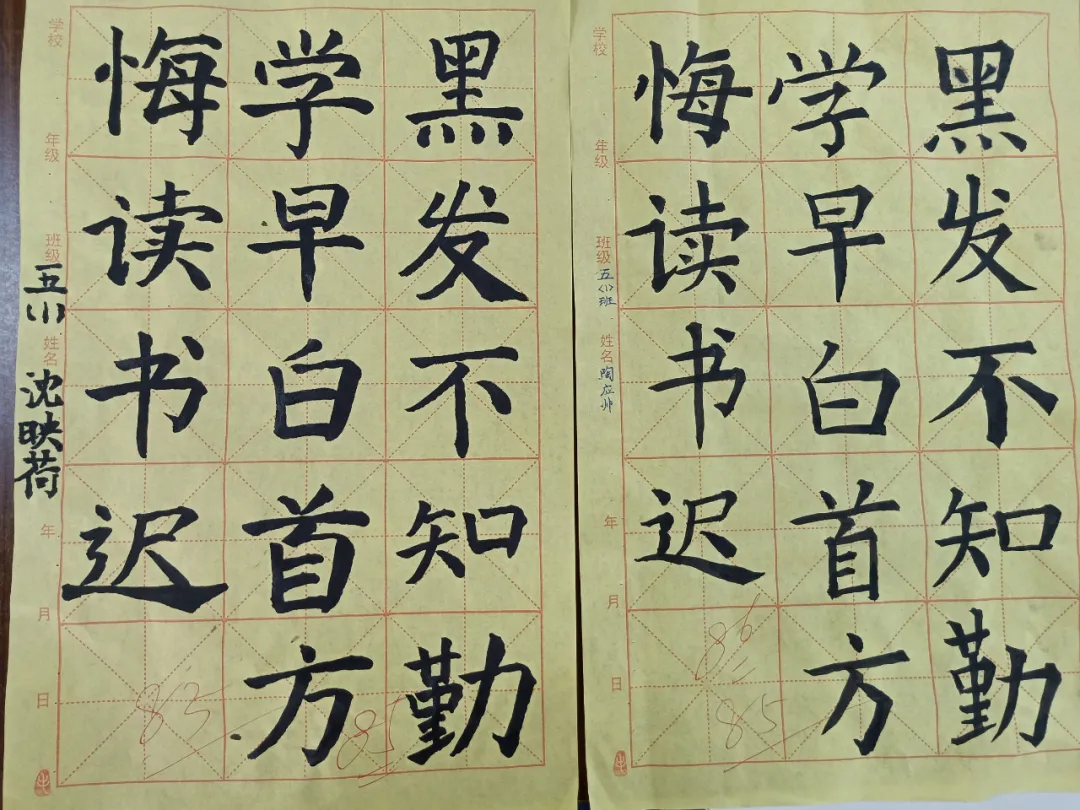 黑发不知勤
学早白首方
悔读书迟
学校
年级
班级
五(1)
姓名
沈映荷
年
月
日
85
85
黑发不知勤
学早白首方
悔读书迟
学校
年级
班级
五(1)班
姓名
陶应帅
年
月
日
86
85